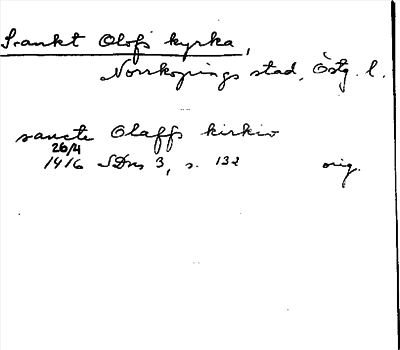 Sankt Olofs kyrka,
Norrköpings stad, Östg. l.
sancte Olaffs kirkio
26/4
1416 SDns 3, s. 132 orig.